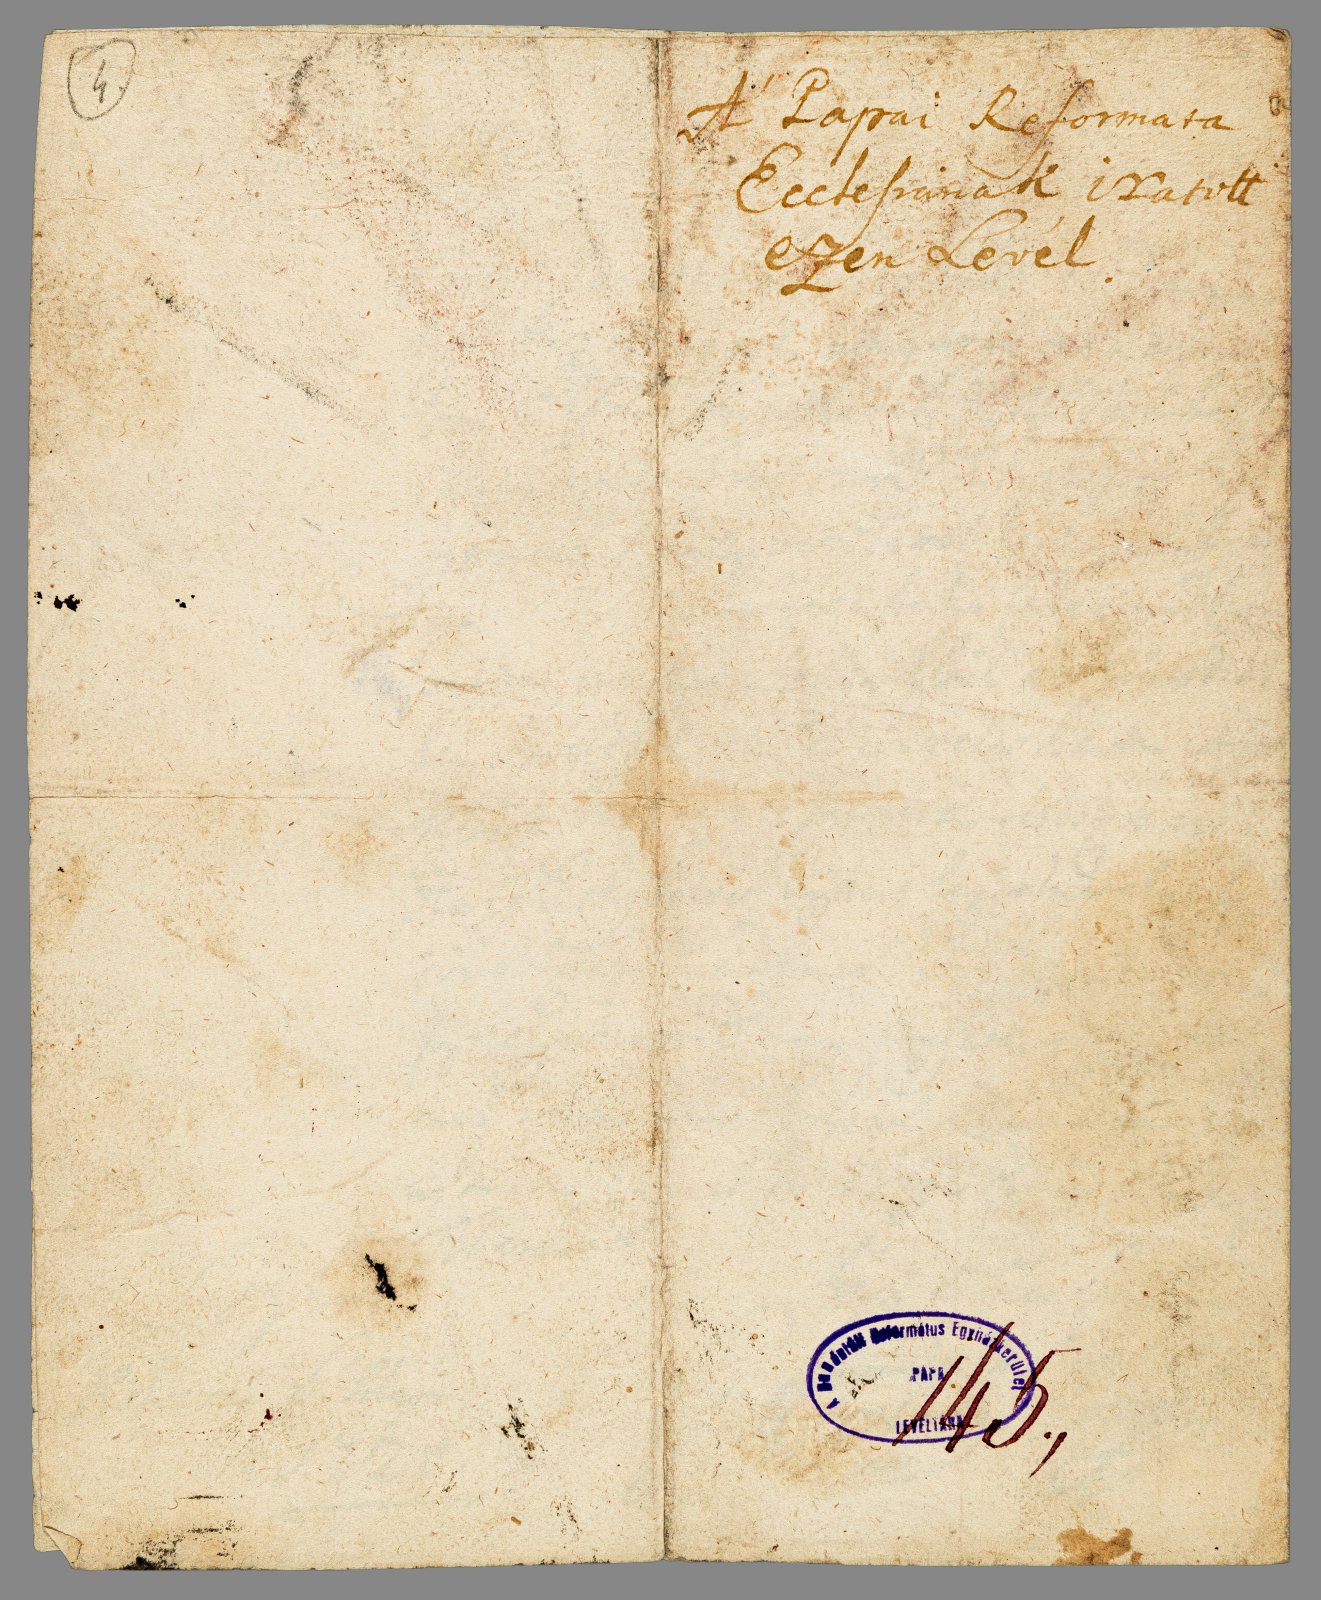 4.
A' Papai Reformata
Ecclesianak iratott
ezen Levél.
A Dunántúli Református Egyházkerület
PÁPA
LEVÉLTÁRA
145.,